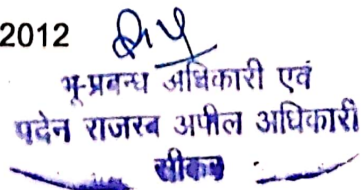 2012
भू-प्रबन्ध अधिकारी एवं
पदेन राजस्व अपील अधिकारी
सीकर